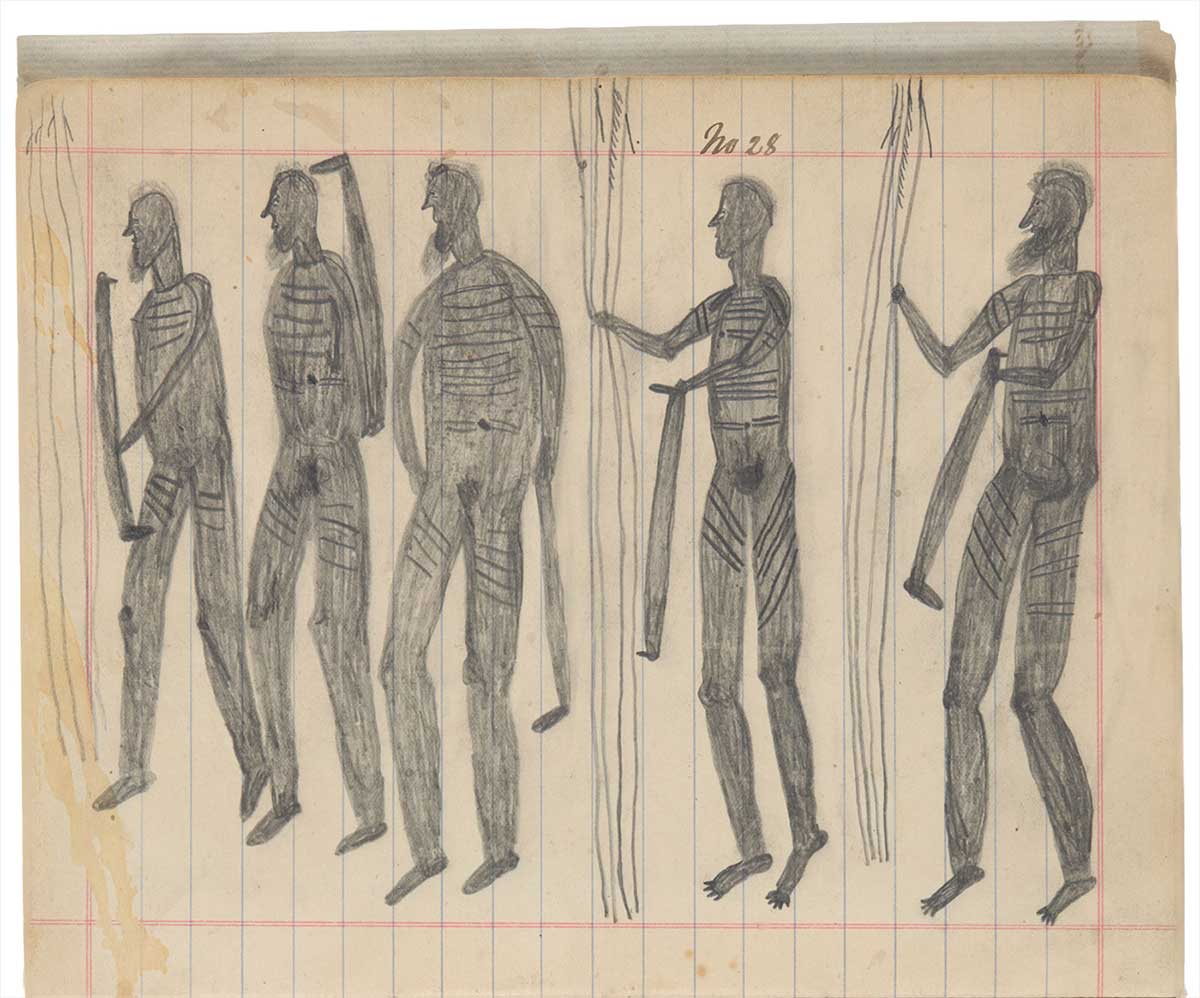 No 28